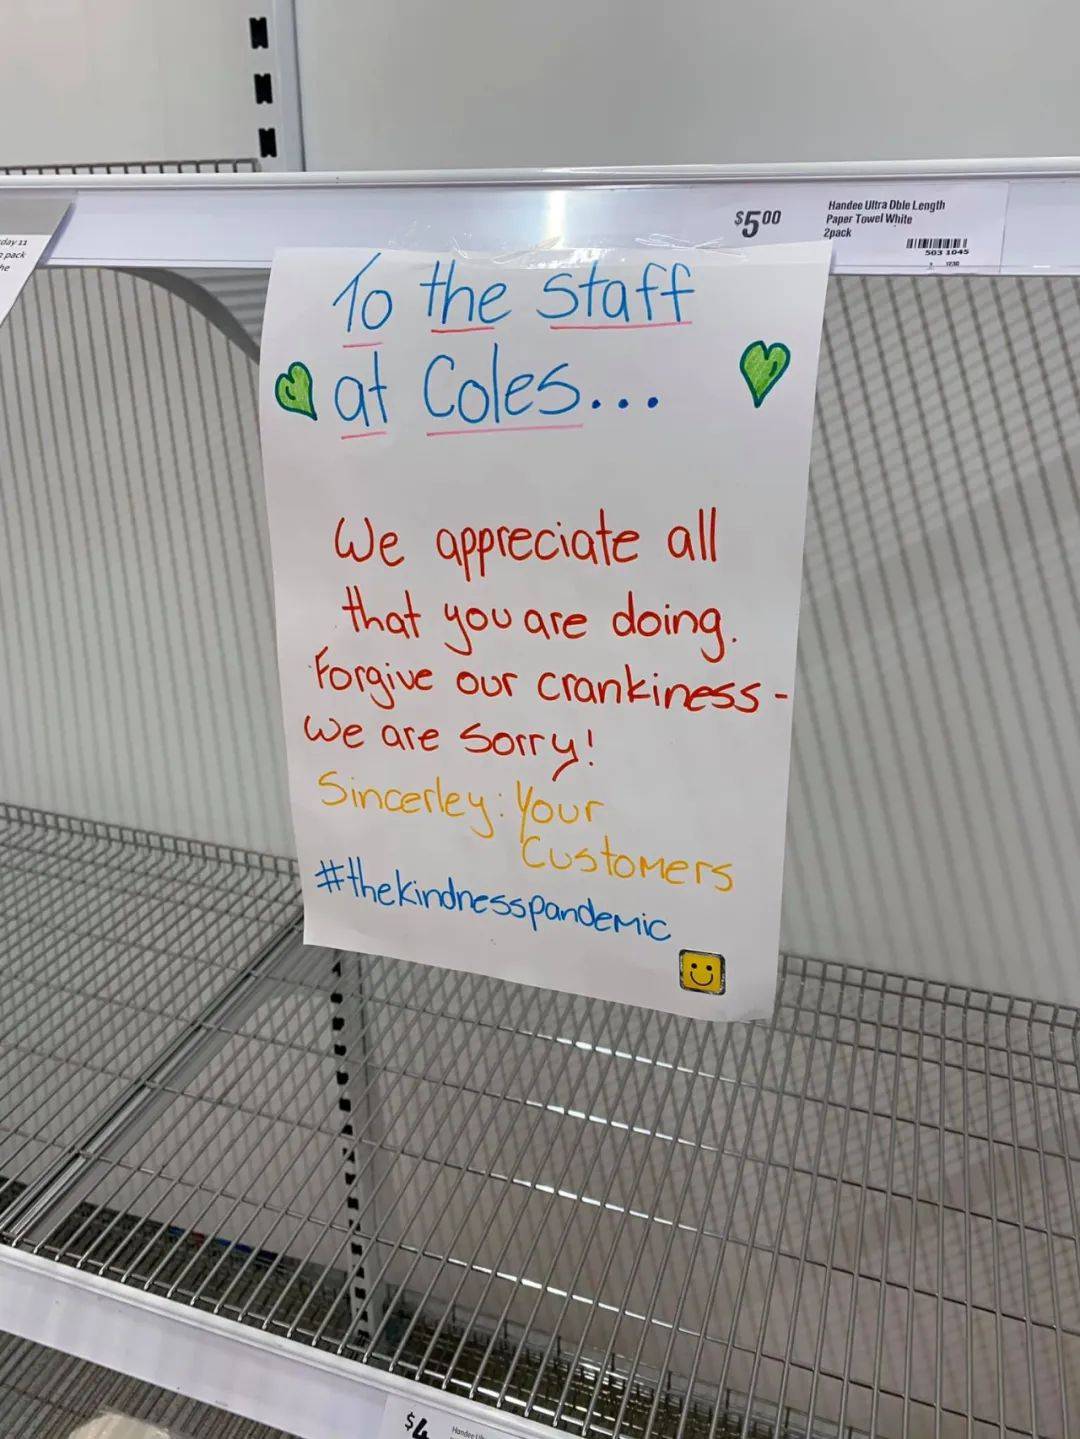 $5.00
Handee Ultra Dble Length
Paper Towel White
2pack
503 1045
day 11
pack
he
To the staff
at Coles...
We appreciate all
that you are doing.
Forgive our crankiness -
we are sorry!
Sincerley: Your
Customers
#thekindnesspandemic
$4
Handee